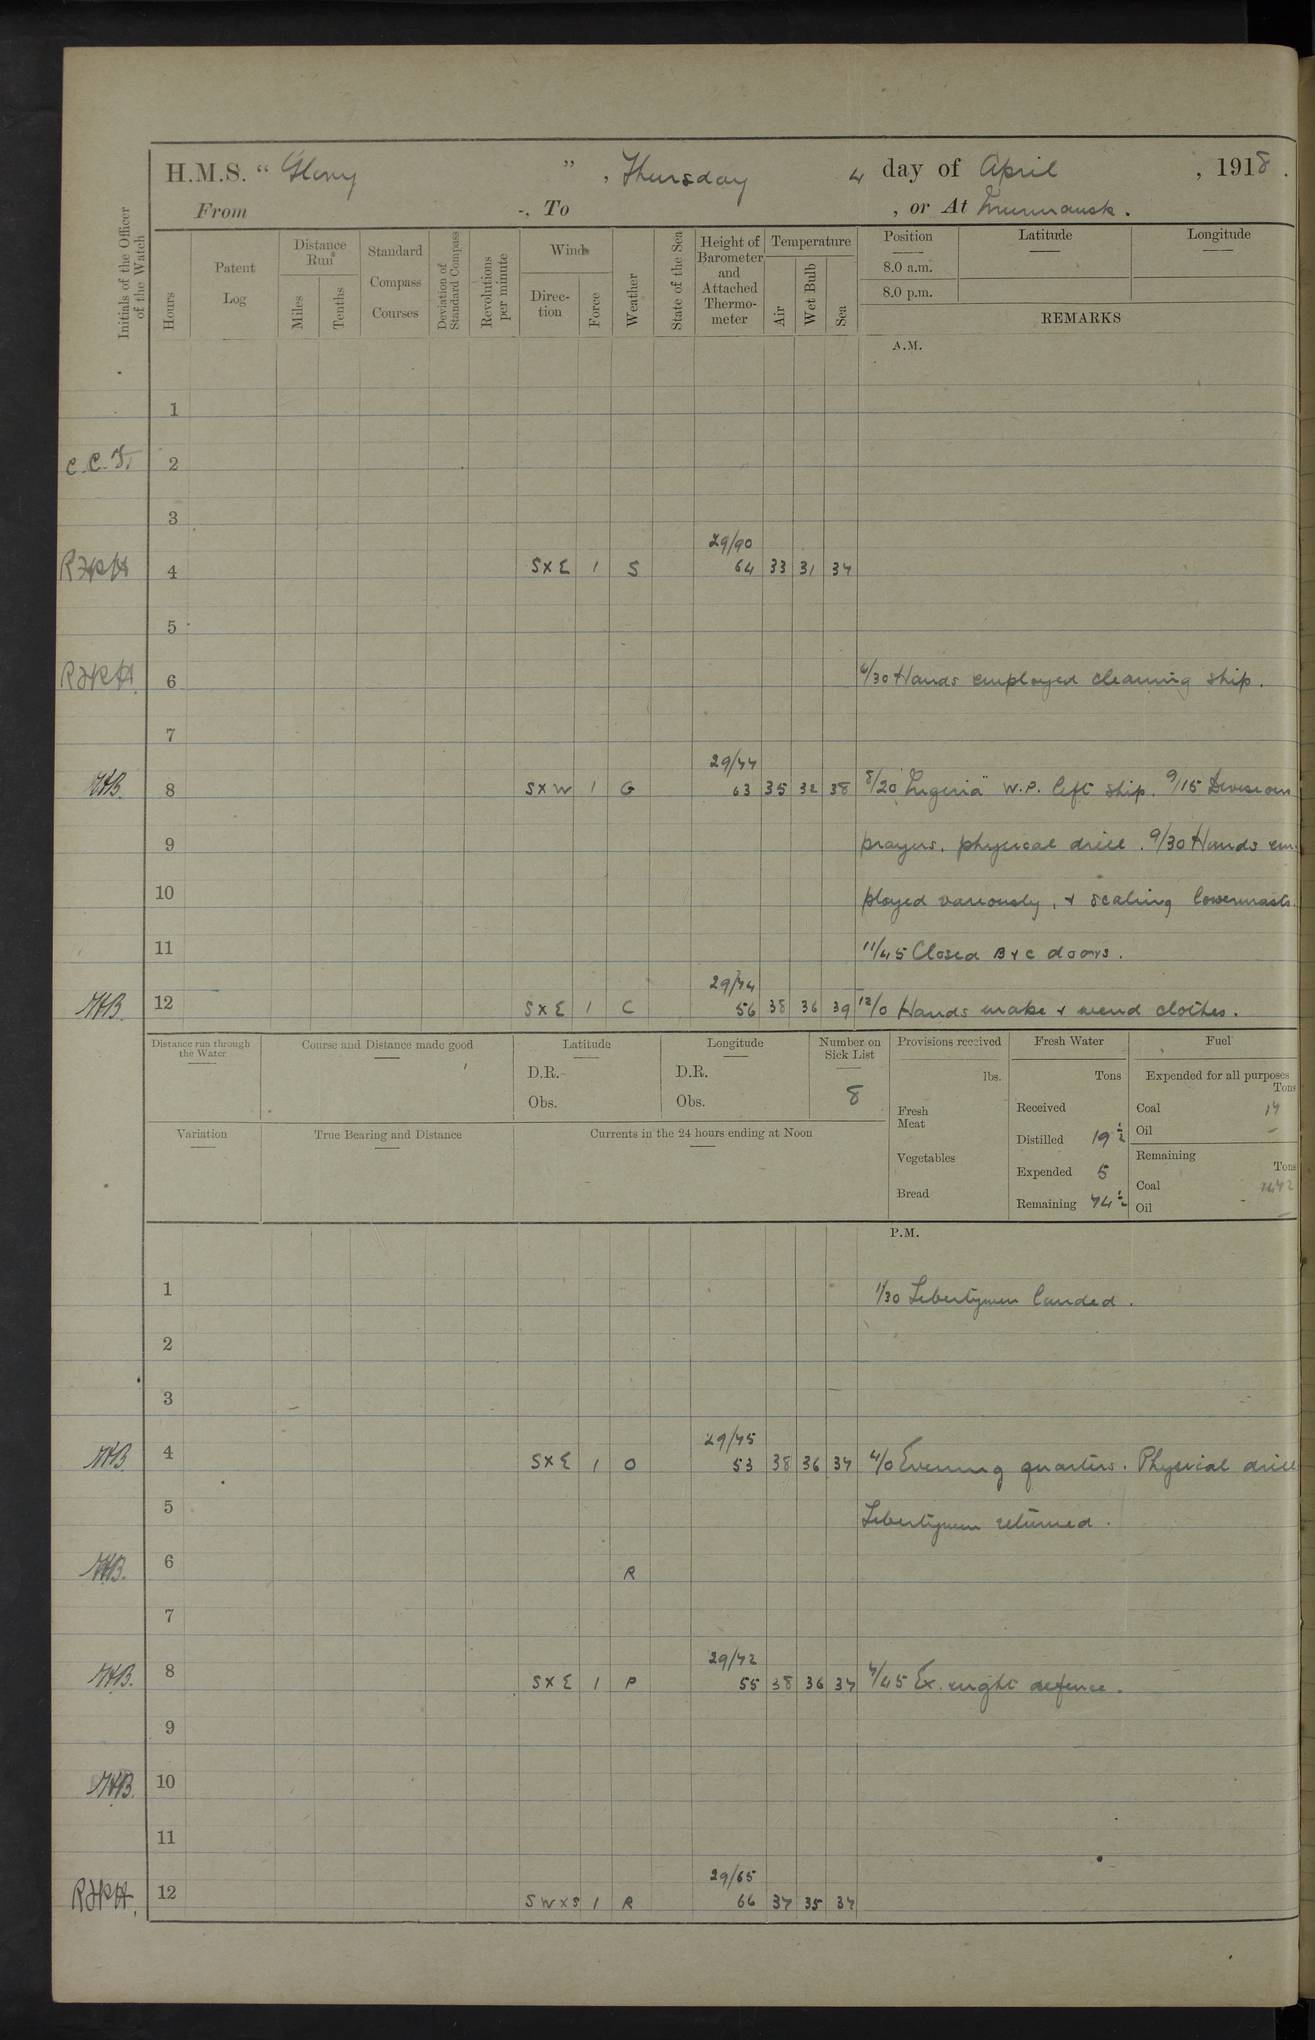 H.M.S. “ Glory ” , Thursday 4 day of April , 1918 .
From -, To , or At Murmansk .
Initials of the Officer of the Watch
Hours
Patent Log
Distance Run
Miles
Tenths
Standard Compass Courses
Deviation of Standard Compass
Revolutions per minute
Wind
Direction
Force
Weather
State of the Sea
Height of Barometer and Attached Thermometer
Temperature
Air
Wet Bulb
Sea
Position
8.0 a.m.
8.0 p.m.
Latitude
Longitude
REMARKS
A.M.
1
C.C.T. 2
3
29/90
4 S×E 1 S 64 33 31 37
5
6 6/30 Hands employed cleaning ship.
7
29/77
8 S×W 1 G 63 35 32 38 8/20 W.P. left ship. 9/15 Division
9 prayers. physical drill. 9/30 Hands em-
10 ployed variously, + scaling lowermasts.
11 11/45 Closed B + C doors.
29/74
12 S×E 1 C 56 38 36 39 12/0 Hands make + mend clothes.
Distance run through the Water
Course and Distance made good
Latitude
D.R.
Obs.
Longitude
D.R.
Obs.
Number on Sick List
8
Variation
True Bearing and Distance
Currents in the 24 hours ending at Noon
Provisions received
lbs.
Fresh Meat
Vegetables
Bread
Fresh Water
Tons
Received
Distilled 19 ½
Expended 5
Remaining 74 ½
Fuel
Expended for all purposes
Tons
Coal 17
Oil –
Remaining
Tons
Coal
Oil –
P.M.
1 1/30 Libertymen landed.
2
3
29/75
4 S×E 1 O 53 38 36 37 4/0 Evening quarters. Physical drill
5 Libertymen returned.
6 R
7
29/72
8 S×E 1 P 55 38 36 37 7/45 Ex. night defence.
9
10
11
29/65
12 SW×S 1 R 66 37 35 37